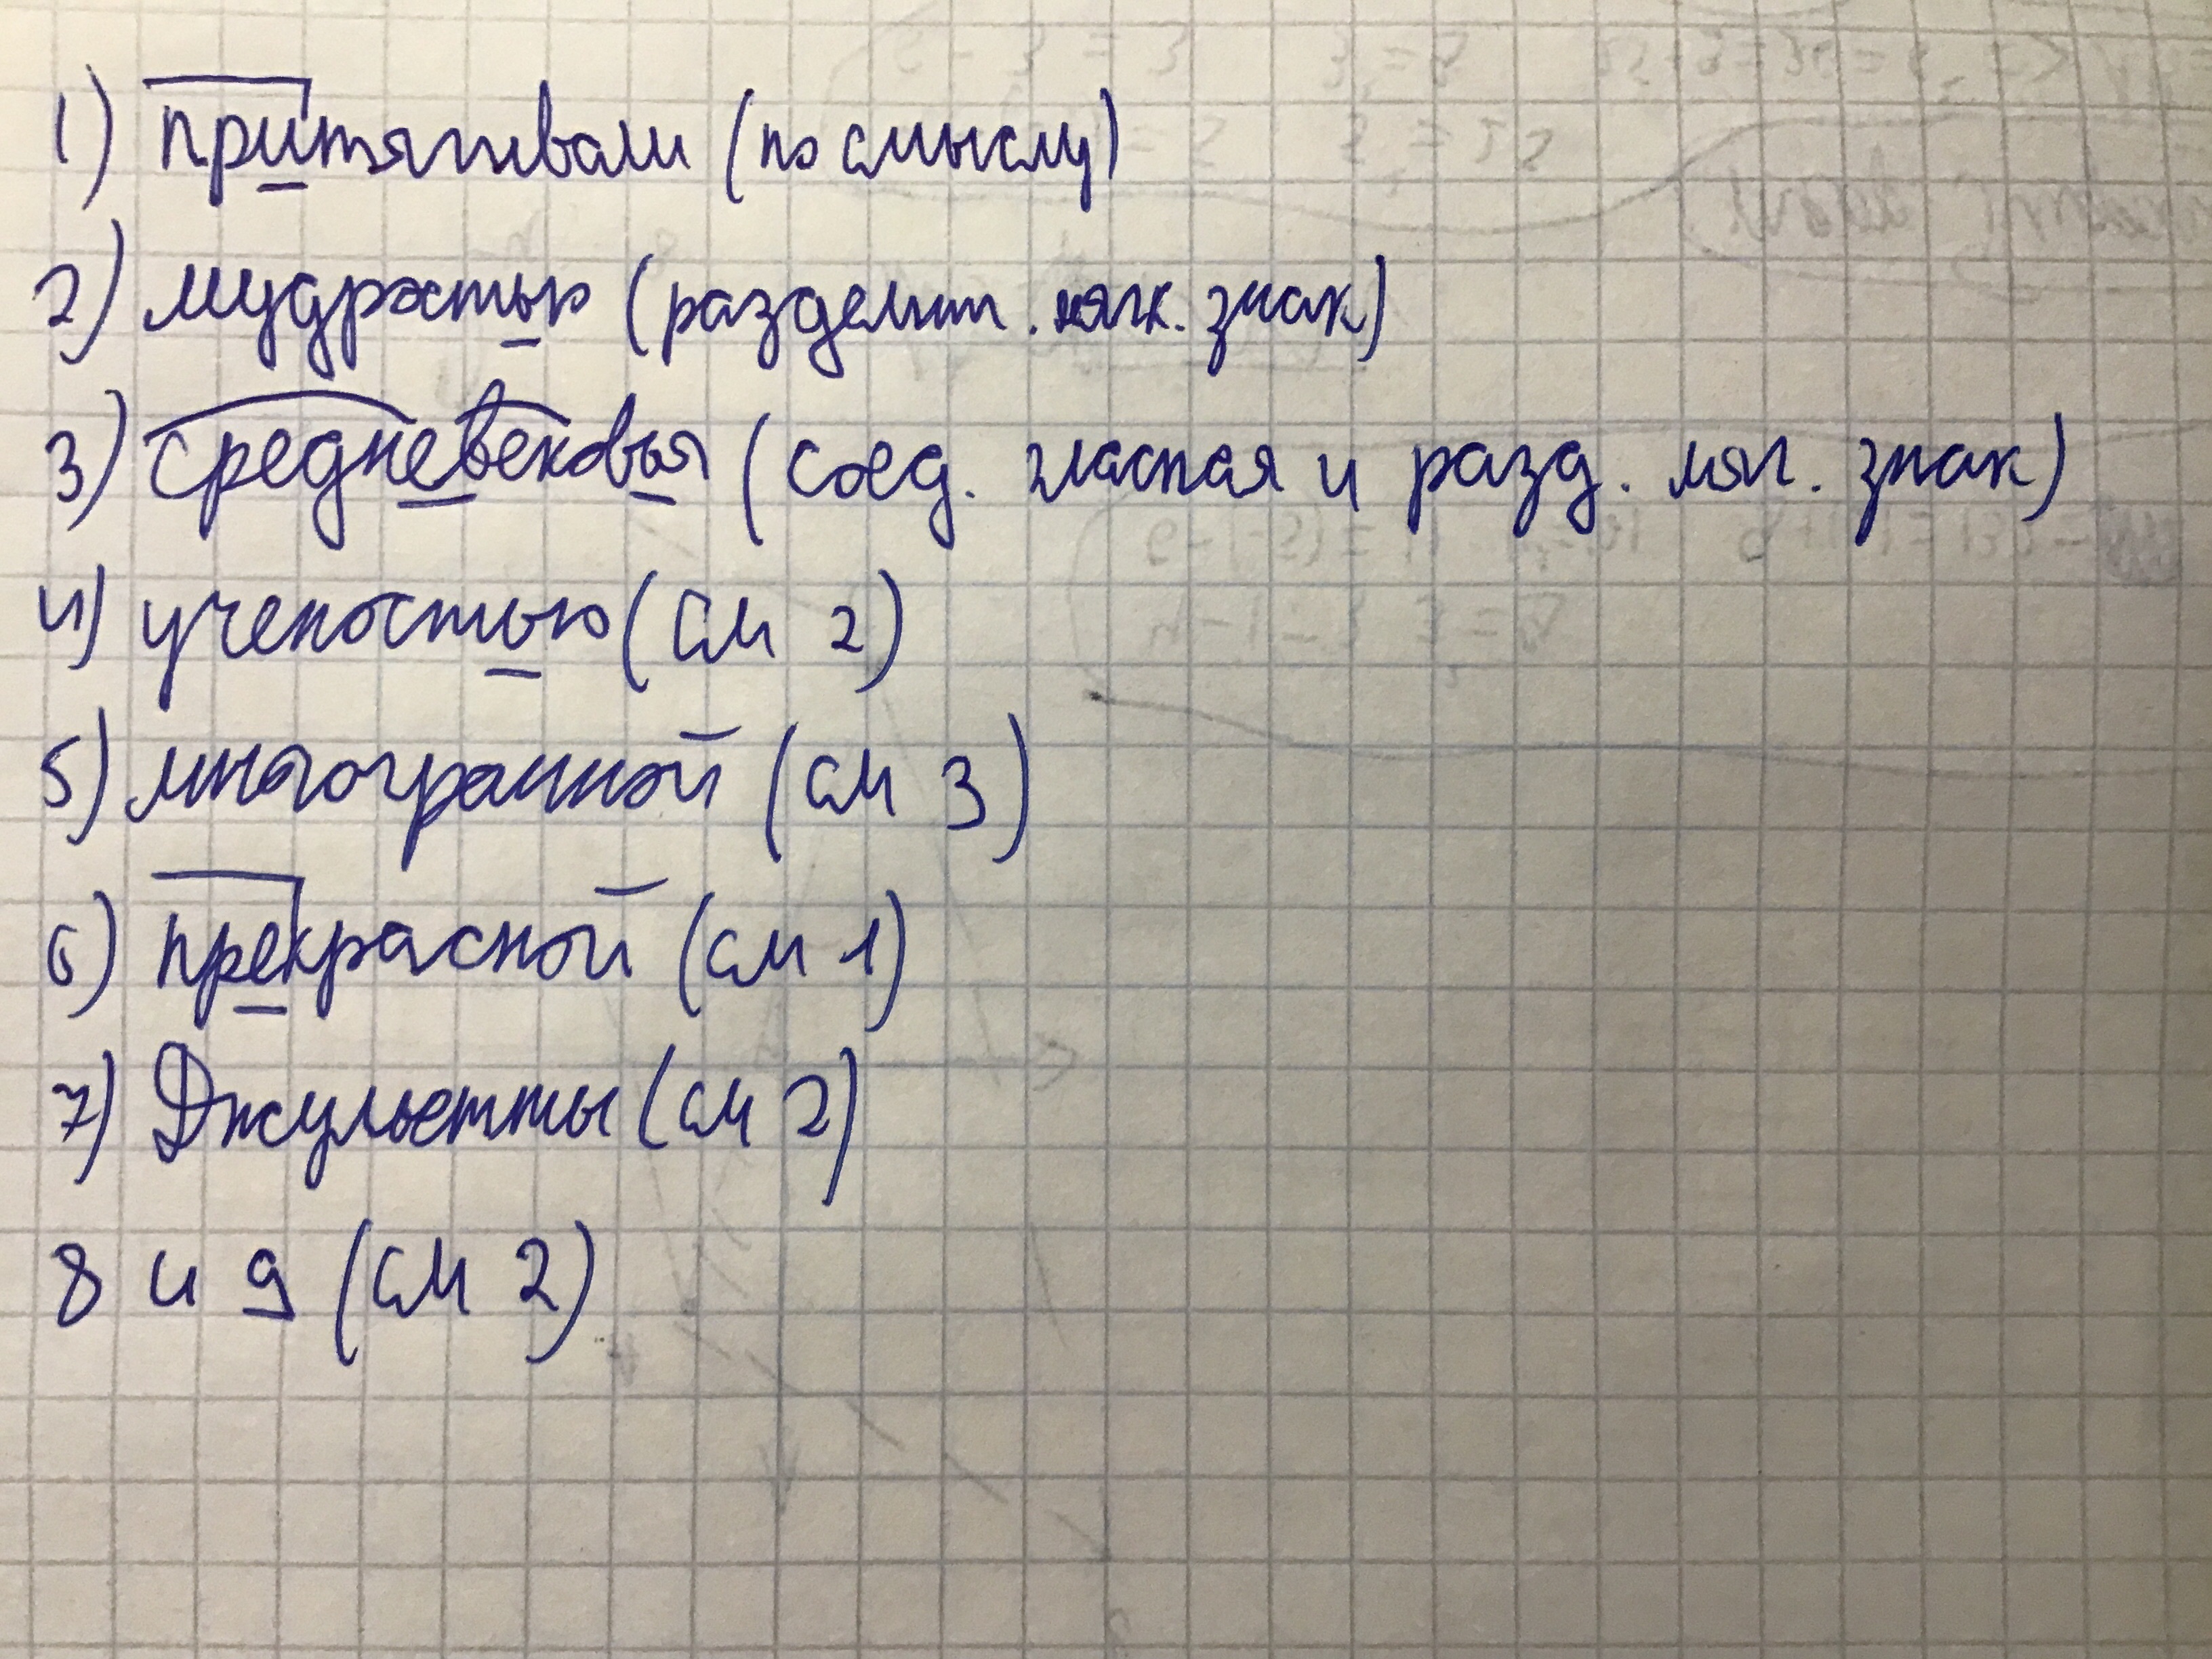 1) притягивали (по смыслу)
2) мудростью (раздемит. мягк. знак)
3) средневековья (соед. гласная и разд. мяг. знак)
4) ученостью (см 2)
5) многогранной (см 3)
6) прекрасной (см 1)
7) Джульетты (см 2)
8 и 9 (см 2)